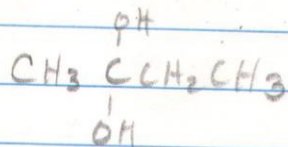 OH
CH3 CCH2CH3
OH